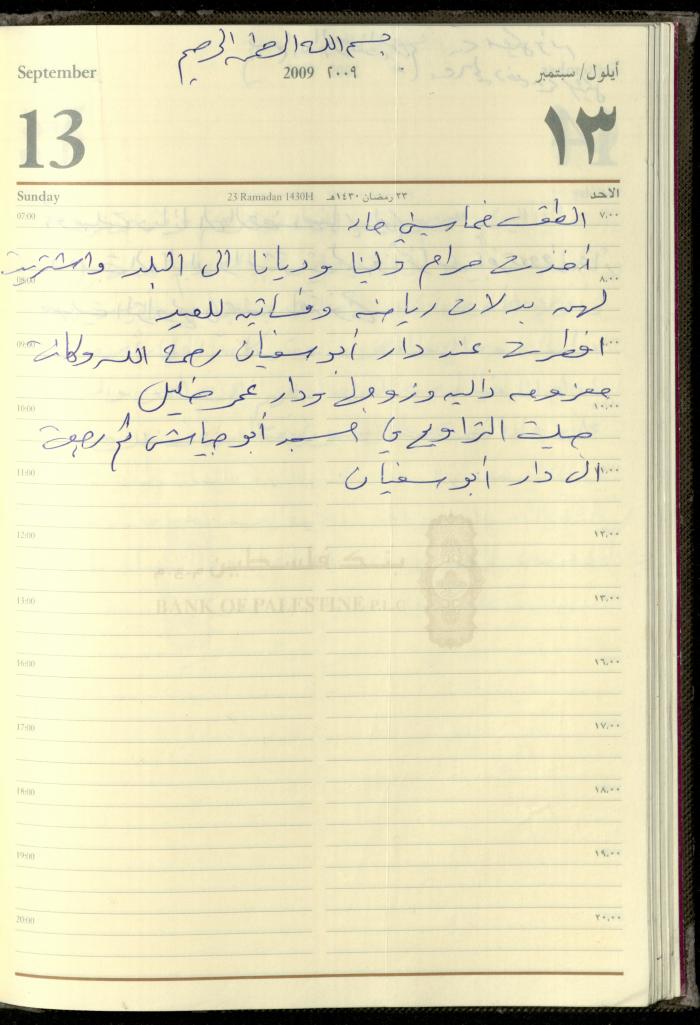 بسم الله الرحمن الرحيم
September 2009 ٢٠٠٩ أيلول/سبتمبر
13 ١٣
Sunday 23 Ramadan 1430H ٢٣ رمضان ١٤٣٠هـ الاحد
07:00 ٧,٠٠
الطقس خماسيني حار
أخذت مرام ولينا وديانا الى البلد واشتريت
08:00 ٨,٠٠
لهن بدلات رياضه وفساتين للعيد
09:00 ٩,٠٠
افطرت عند دار أبو سفيان رحمة الله وكانت
معزومه داليه وزوجها ودار عمر خليل
10:00 ١٠,٠٠
صليت التراويح في مسجد أبو عياش ثم رجعت
11:00 ١١,٠٠
الى دار أبو سفيان
12:00 ١٢,٠٠
بنك فلسطين
13:00 ١٣,٠٠
BANK OF PALESTINE P.L.C
16:00 ١٦,٠٠
17:00 ١٧,٠٠
18:00 ١٨,٠٠
19:00 ١٩,٠٠
20:00 ٢٠,٠٠